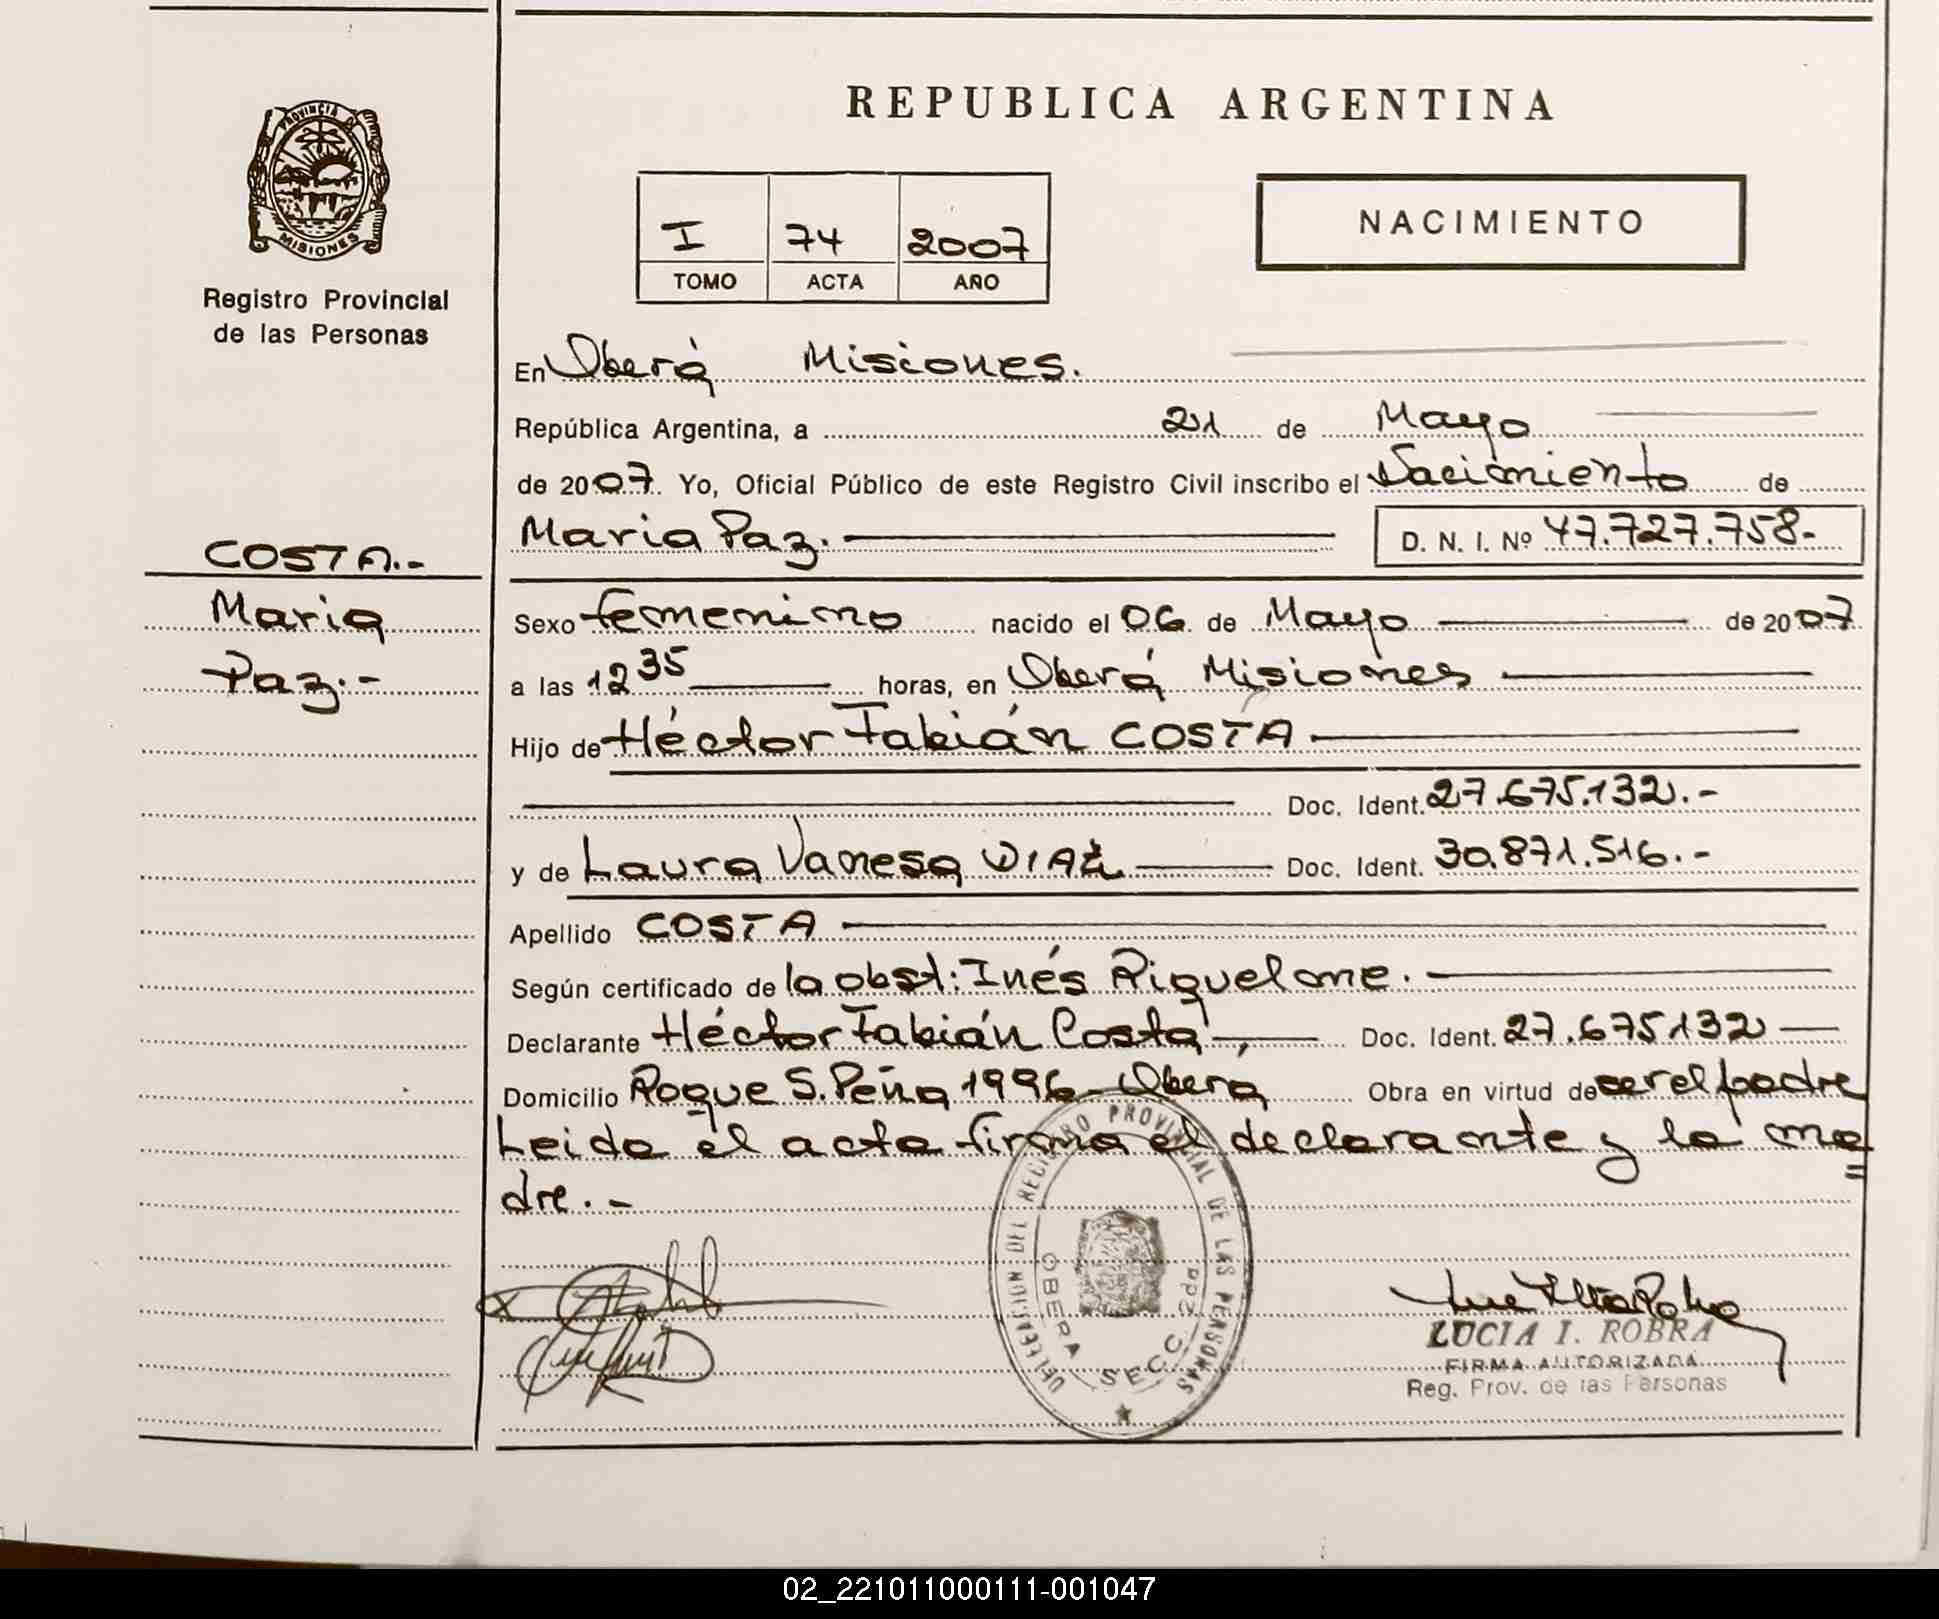 REPUBLICA ARGENTINA
PROVINCIA DE
MISIONES
Registro Provincial
de las Personas
I 74 2007
TOMO ACTA AÑO
NACIMIENTO
En Oberá Misiones.
República Argentina, a 21 de Mayo
de 2007. Yo, Oficial Público de este Registro Civil inscribo el Nacimiento de
Maria Paz. D. N. I. Nº 47.727.758-
COSTA.-
Maria
Paz.-
Sexo femenino nacido el 06 de Mayo de 2007
a las 12 35 horas, en Oberá Misiones
Hijo de Héctor Fabián COSTA
Doc. Ident. 27.675.132.-
y de Laura Vanesa DIAZ Doc. Ident. 30.871.516.-
Apellido COSTA
Según certificado de la obst: Inés Riquelme.
Declarante Héctor Fabián Costa Doc. Ident. 27.675132
Domicilio Roque S. Peña 1996 Oberá Obra en virtud de ser el padre
Leida el acta firma el declarante y la ma
dre.-
DELEGACION DEL REGISTRO PROVINCIAL DE LAS PERSONAS
OBERA SECC. 2da
LUCIA I. ROBRA
FIRMA AUTORIZADA
Reg. Prov. de las Personas
02_221011000111-001047